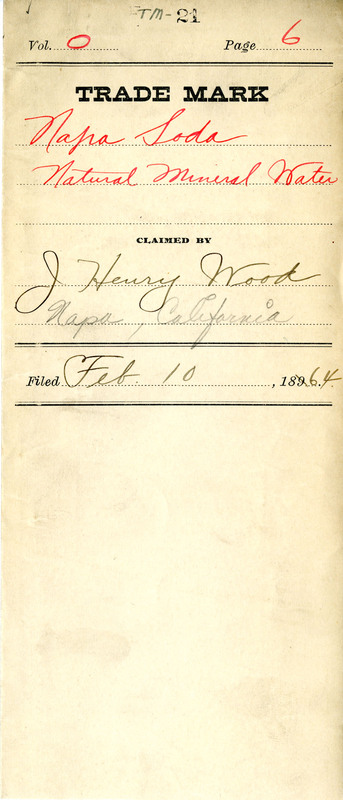 TM-21
Vol. 0 Page 6
TRADE MARK
Napa Soda
Natural Mineral Water
CLAIMED BY
J Henry Wood
Napa, California
Filed Feb. 10, 18964.